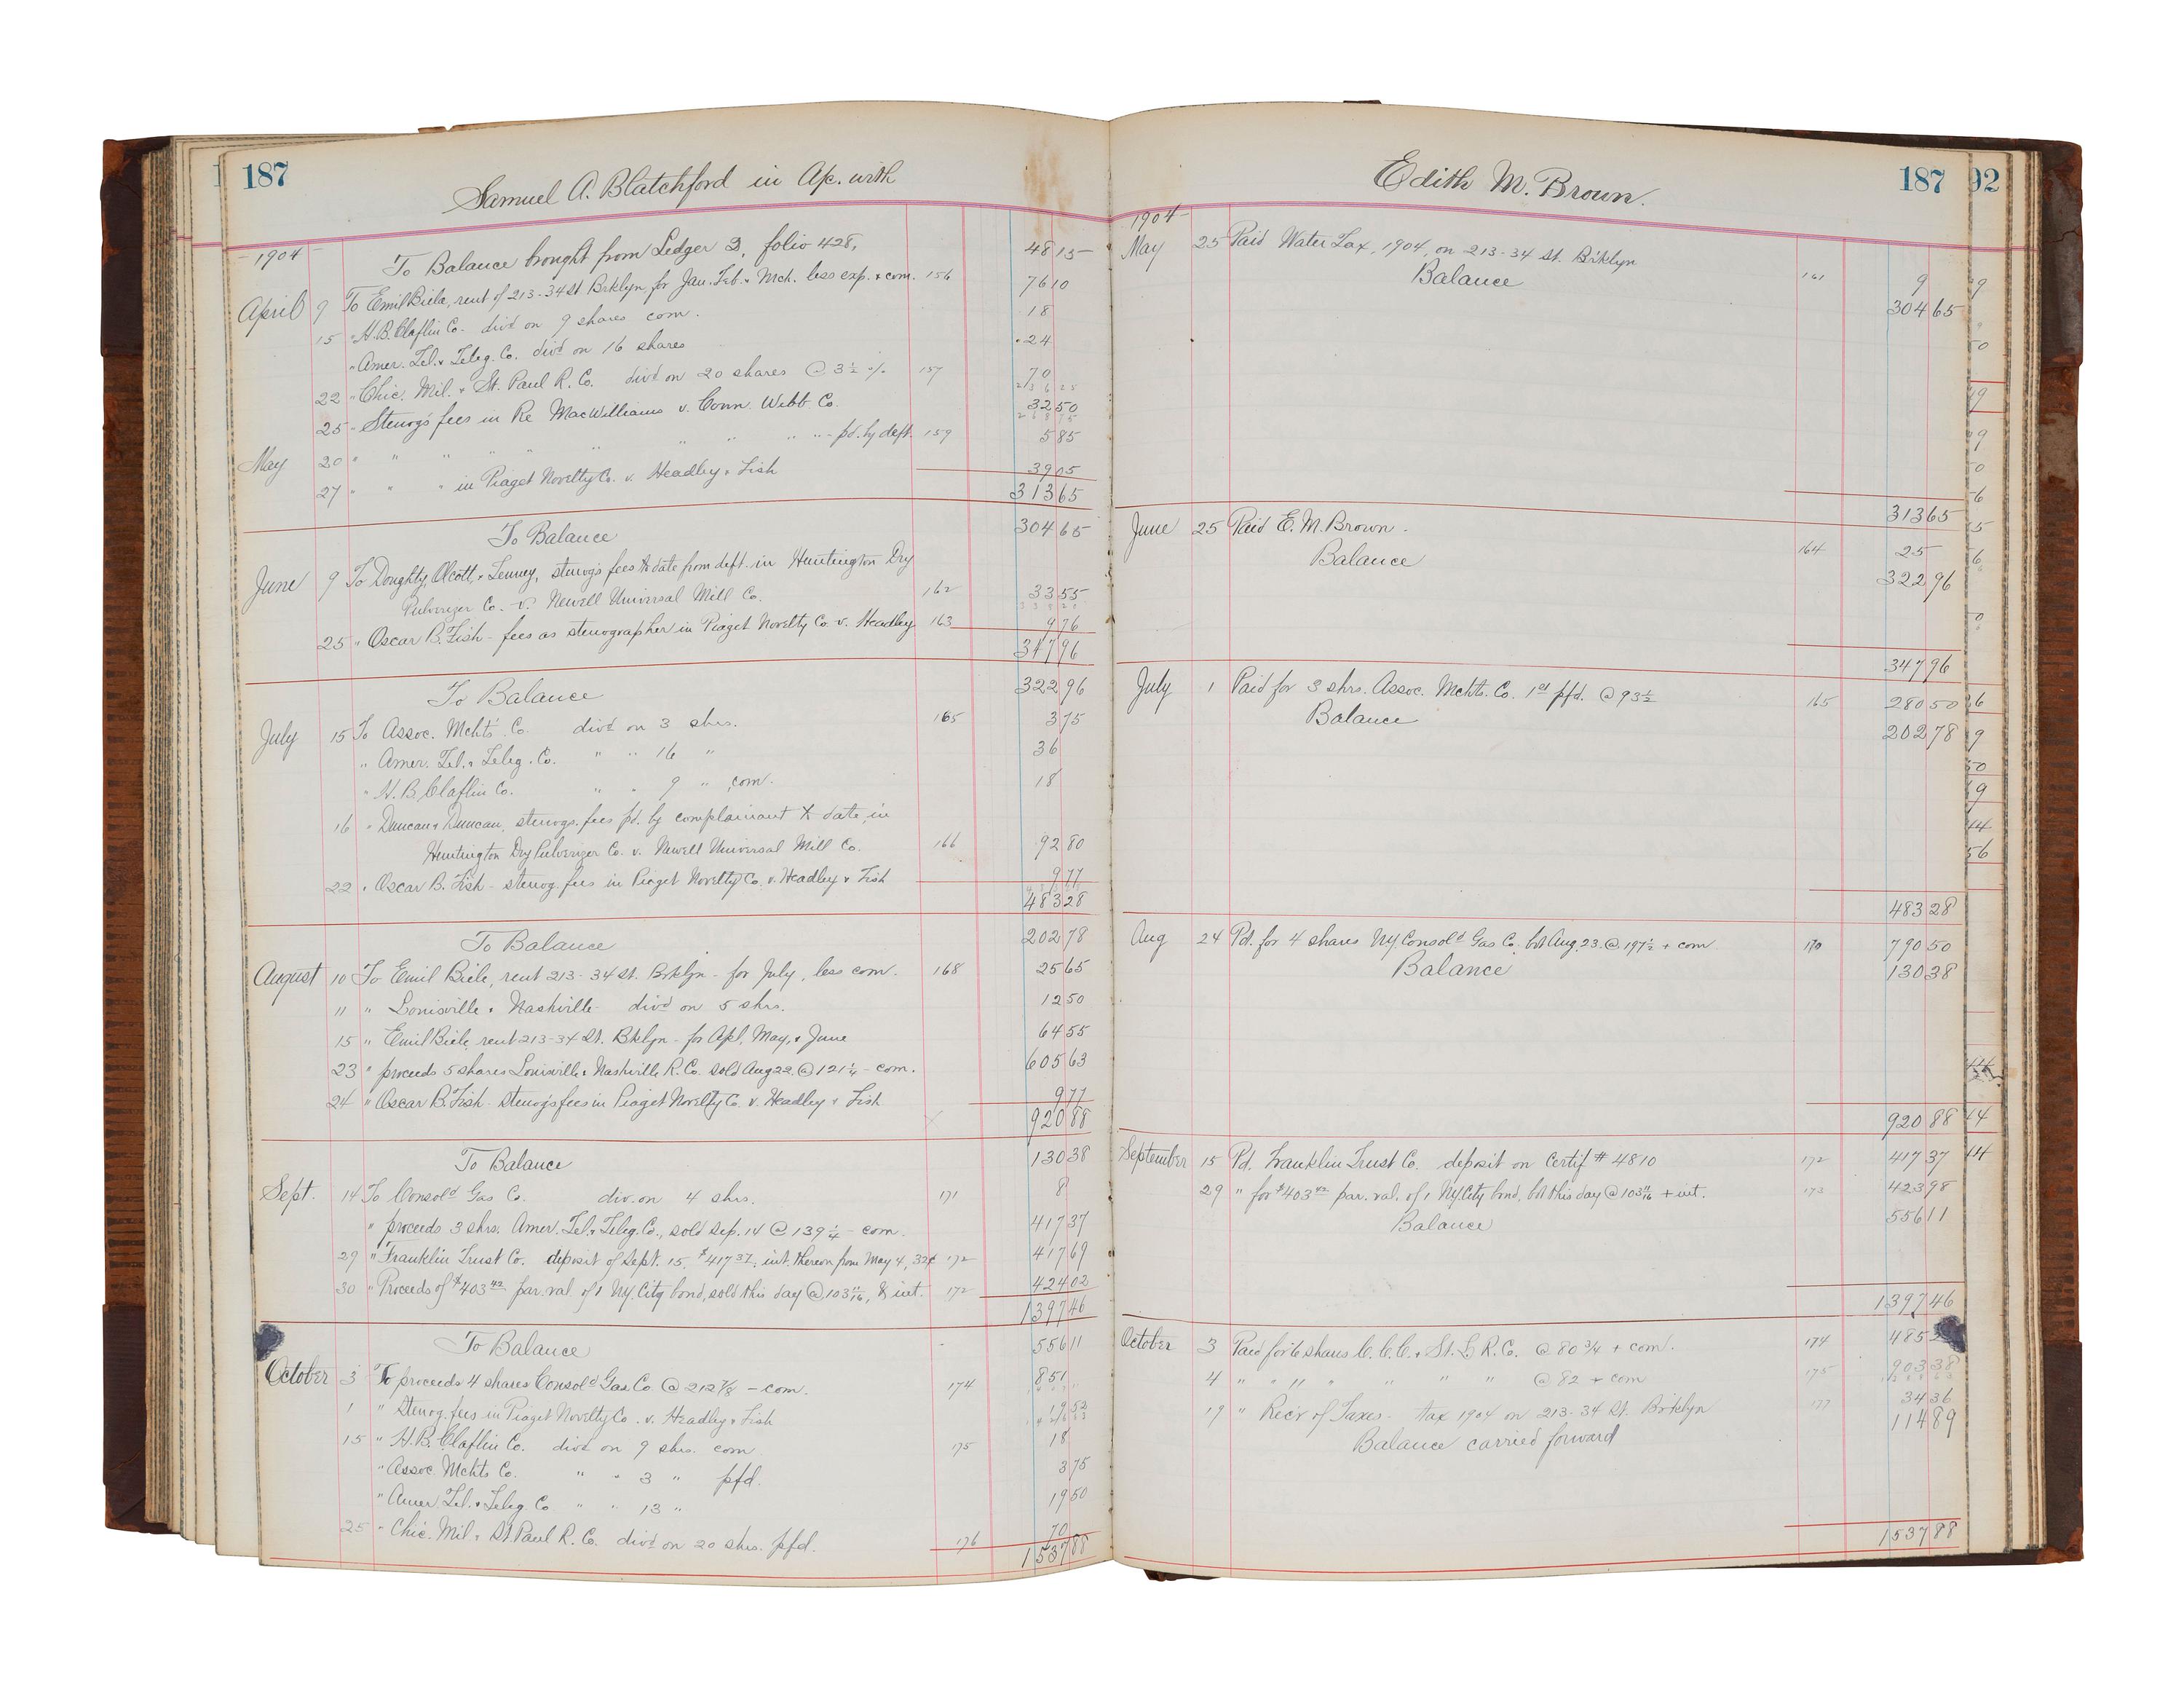 187
Samuel A. Blatchford in A/c. with
1904
To Balance brought from Ledger D, folio 428, 48 15
April 9 To Emil Biele, rent of 213-34 St Brklyn for Jan. Feb. & Mch. less exp. & com. 156 76 10
15 " H.B. Claflin Co. divd on 9 shares com. 18
" Amer. Tel. & Teleg. Co. divd on 16 shares 24
22 " Chic. Mil. & St. Paul R. Co. divd on 20 shares @ 3½ % 157 70
25 - Stenog's fees in Re MacWilliams v. Conn. Webb Co. 32 50
May 20 " " " " " " " " " - pd. by deft. 159 5 85
27 " " " in Piaget Novelty Co. v. Headley & Fish 39 05
313 65
To Balance 304 65
June 9 To Doughty, Olcott, & Tenney, stenog's fees to date from deft. in Huntington Dry
Pulverizer Co. v. Newell Universal Mill Co. 162 33 55
25 " Oscar B. Fish - fees as stenographer in Piaget Novelty Co. v. Headley 163 9 76
347 96
To Balance 322 96
July 15 To Assoc. Mchts' Co. divd on 3 shrs. 165 3 75
" Amer. Tel. & Teleg. Co. " " 16 " 36
" H.B. Claflin Co. " " 9 " com. 18
16 " Duncan & Duncan, stenogs. fees pd. by complainant to date, in
Huntington Dry Pulverizer Co. v. Newell Universal Mill Co. 166 92 80
22 " Oscar B. Fish - stenog. fees in Piaget Novelty Co. v. Headley & Fish 9 77
483 28
To Balance 202 78
August 10 To Emil Biele, rent 213-34 St. Brklyn - for July, less com. 168 25 65
11 " Louisville & Nashville - divd on 5 shrs. 12 50
15 " Emil Biele, rent 213-34 St. Bklyn - for Apl, May, & June 64 55
23 " proceeds 5 shares Louisville & Nashville R. Co. sold Aug 22 @ 121¼ - com. 605 63
24 " Oscar B. Fish - stenog's fees in Piaget Novelty Co. v. Headley & Fish 9 77
920 88
To Balance 130 38
Sept. 14 To Consold Gas Co. div. on 4 shrs. 171 8
" proceeds 3 shrs. Amer. Tel. & Teleg. Co., sold Sep. 14 @ 139¼ - com. 417 37
29 " Franklin Trust Co. deposit of Sept. 15, $417 37, int. thereon from May 4, 32¢ 172 417 69
30 " Proceeds of $403 42 par. val. of 1 N.Y. City bond, sold this day @ 103 11/16, & int. 172 424 02
1397 46
To Balance 556 11
October 3 To proceeds 4 shares Consold Gas Co @ 212⅞ - com. 174 851
1 " Stenog. fees in Piaget Novelty Co. v. Headley & Fish 19 52
15 " H.B. Claflin Co. divd on 9 shrs. com 175 18
" Assoc. Mchts Co. " " 3 " pfd. 3 75
" Amer. Tel. & Teleg. Co " " 13 " 19 50
25 - Chic. Mil. & St Paul R. Co. divd on 20 shrs. pfd. 176 70
1537 88
Edith M. Brown.
187
92
1904
May 25 Paid Water Tax, 1904, on 213-34 St. Brklyn 161 9
Balance 304 65
313 65
June 25 Paid E. M. Brown. 164 25
Balance 322 96
347 96
July 1 Paid for 3 shrs. Assoc. Mchts. Co. 1st pfd. @ 93½ 165 280 50
Balance 202 78
483 28
Aug 24 Pd. for 4 shares N.Y. Consold Gas Co. bot Aug. 23. @ 197½ + com 170 790 50
Balance 130 38
920 88
September 15 Pd. Franklin Trust Co. deposit on Certif # 4810 172 417 37
29 " for $403 42 par. val. of 1 N.Y. City bond, bot this day @ 103 11/16 + int. 173 423 98
Balance 556 11
1397 46
October 3 Paid for 6 shares C.C.C. & St. L R. Co. @ 80¾ + com. 174 485
4 " " " " " " " @ 82 + com 175 903 38
19 " Recr of Taxes - tax 1904 on 213-34 St. Brklyn 177 34 36
Balance carried forward 114 89
1537 88